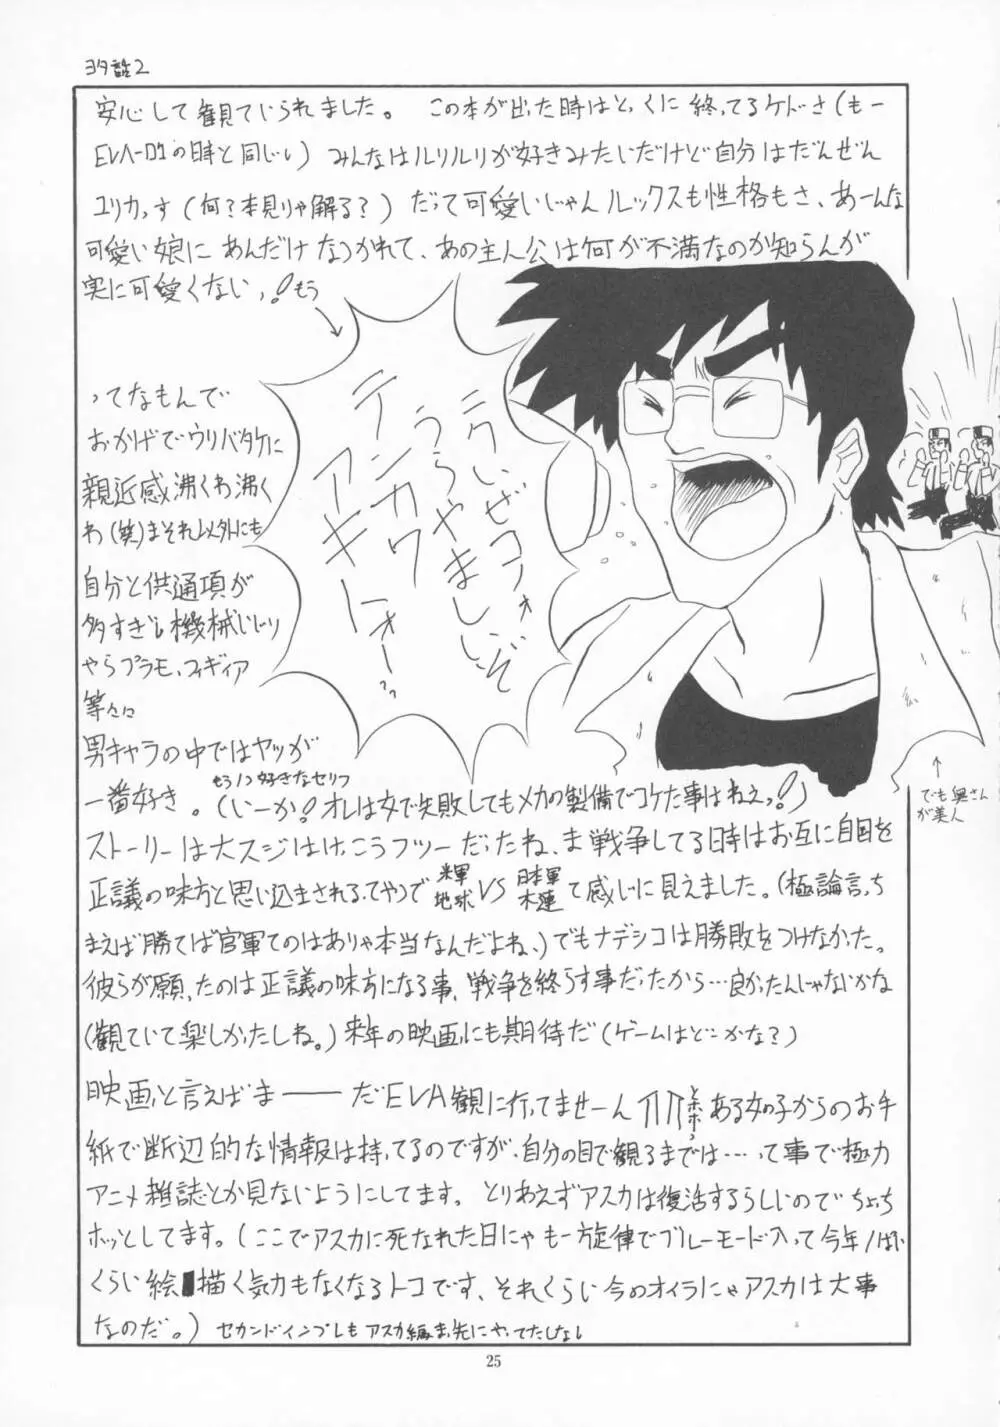 ヨタ話2
安心して観てじられました。 この本が出た時はとっくに終ってるケドさ(もー
EVA-01の時と同じい) みんなはルリルリが好きみたいだけど自分はだんぜん
ユリカっす(何?本見りゃ解る?) だって可愛いじゃんルックスも性格もさ、あーんな
可愛い娘にあんだけなつかれて、あの主人公は何が不満なのか知らんが
実に可愛くないっ!もう
ニクいぜコンォ
うらやましいぞ
テンカワ
アキトォーっ
ってなもんで
おかげでウリバタケに
親近感沸くわ沸く
わ(笑)まそれ以外にも
自分と供通項が
多すぎる機械いじり
やらプラモ、フィギィア
等々に
男キャラの中ではヤツが
もう1つ好きなセリフ
一番好き。(いーか!オレは女で失敗してもメカの製備でコケた事はねえっ!)
でも奥さん
が美人
ストーリーは大スジはけっこうフツーだったね、ま戦争してる時はお互に自国を
正議の味方と思い込まされるってやつで 米軍地球 VS 日本軍木連 て感じに見えました。(極論言っち
まえば勝てば官軍てのはありゃ本当なんだよね、)でもナデシコは勝敗をつけなかった。
彼らが願ったのは正議の味方になる事、戦争を終らす事だったから…良かったんじゃないかな
(観ていて楽しかったしね。)来年の映画にも期待だ(ゲームはどこかな?)
映画と言えばま――だEVA観に行ってませーん トホホっ ある女の子からのお手
紙で断辺的な情報は持ってるのですが、自分の目で観るまでは…って事で極力
アニメ雑誌とか見ないようにしてます。とりあえずアスカは復活するらしいのでちょっち
ホッとしてます。(ここでアスカに死なれた日にゃもー旋律でブルーモード入って今年1ぱい
くらい絵描く気力もなくなるトコです、それくらい今のオイラにゃアスカは大事
なのだ。) セカンドインプレもアスカ編ま先にやってたしなし
25